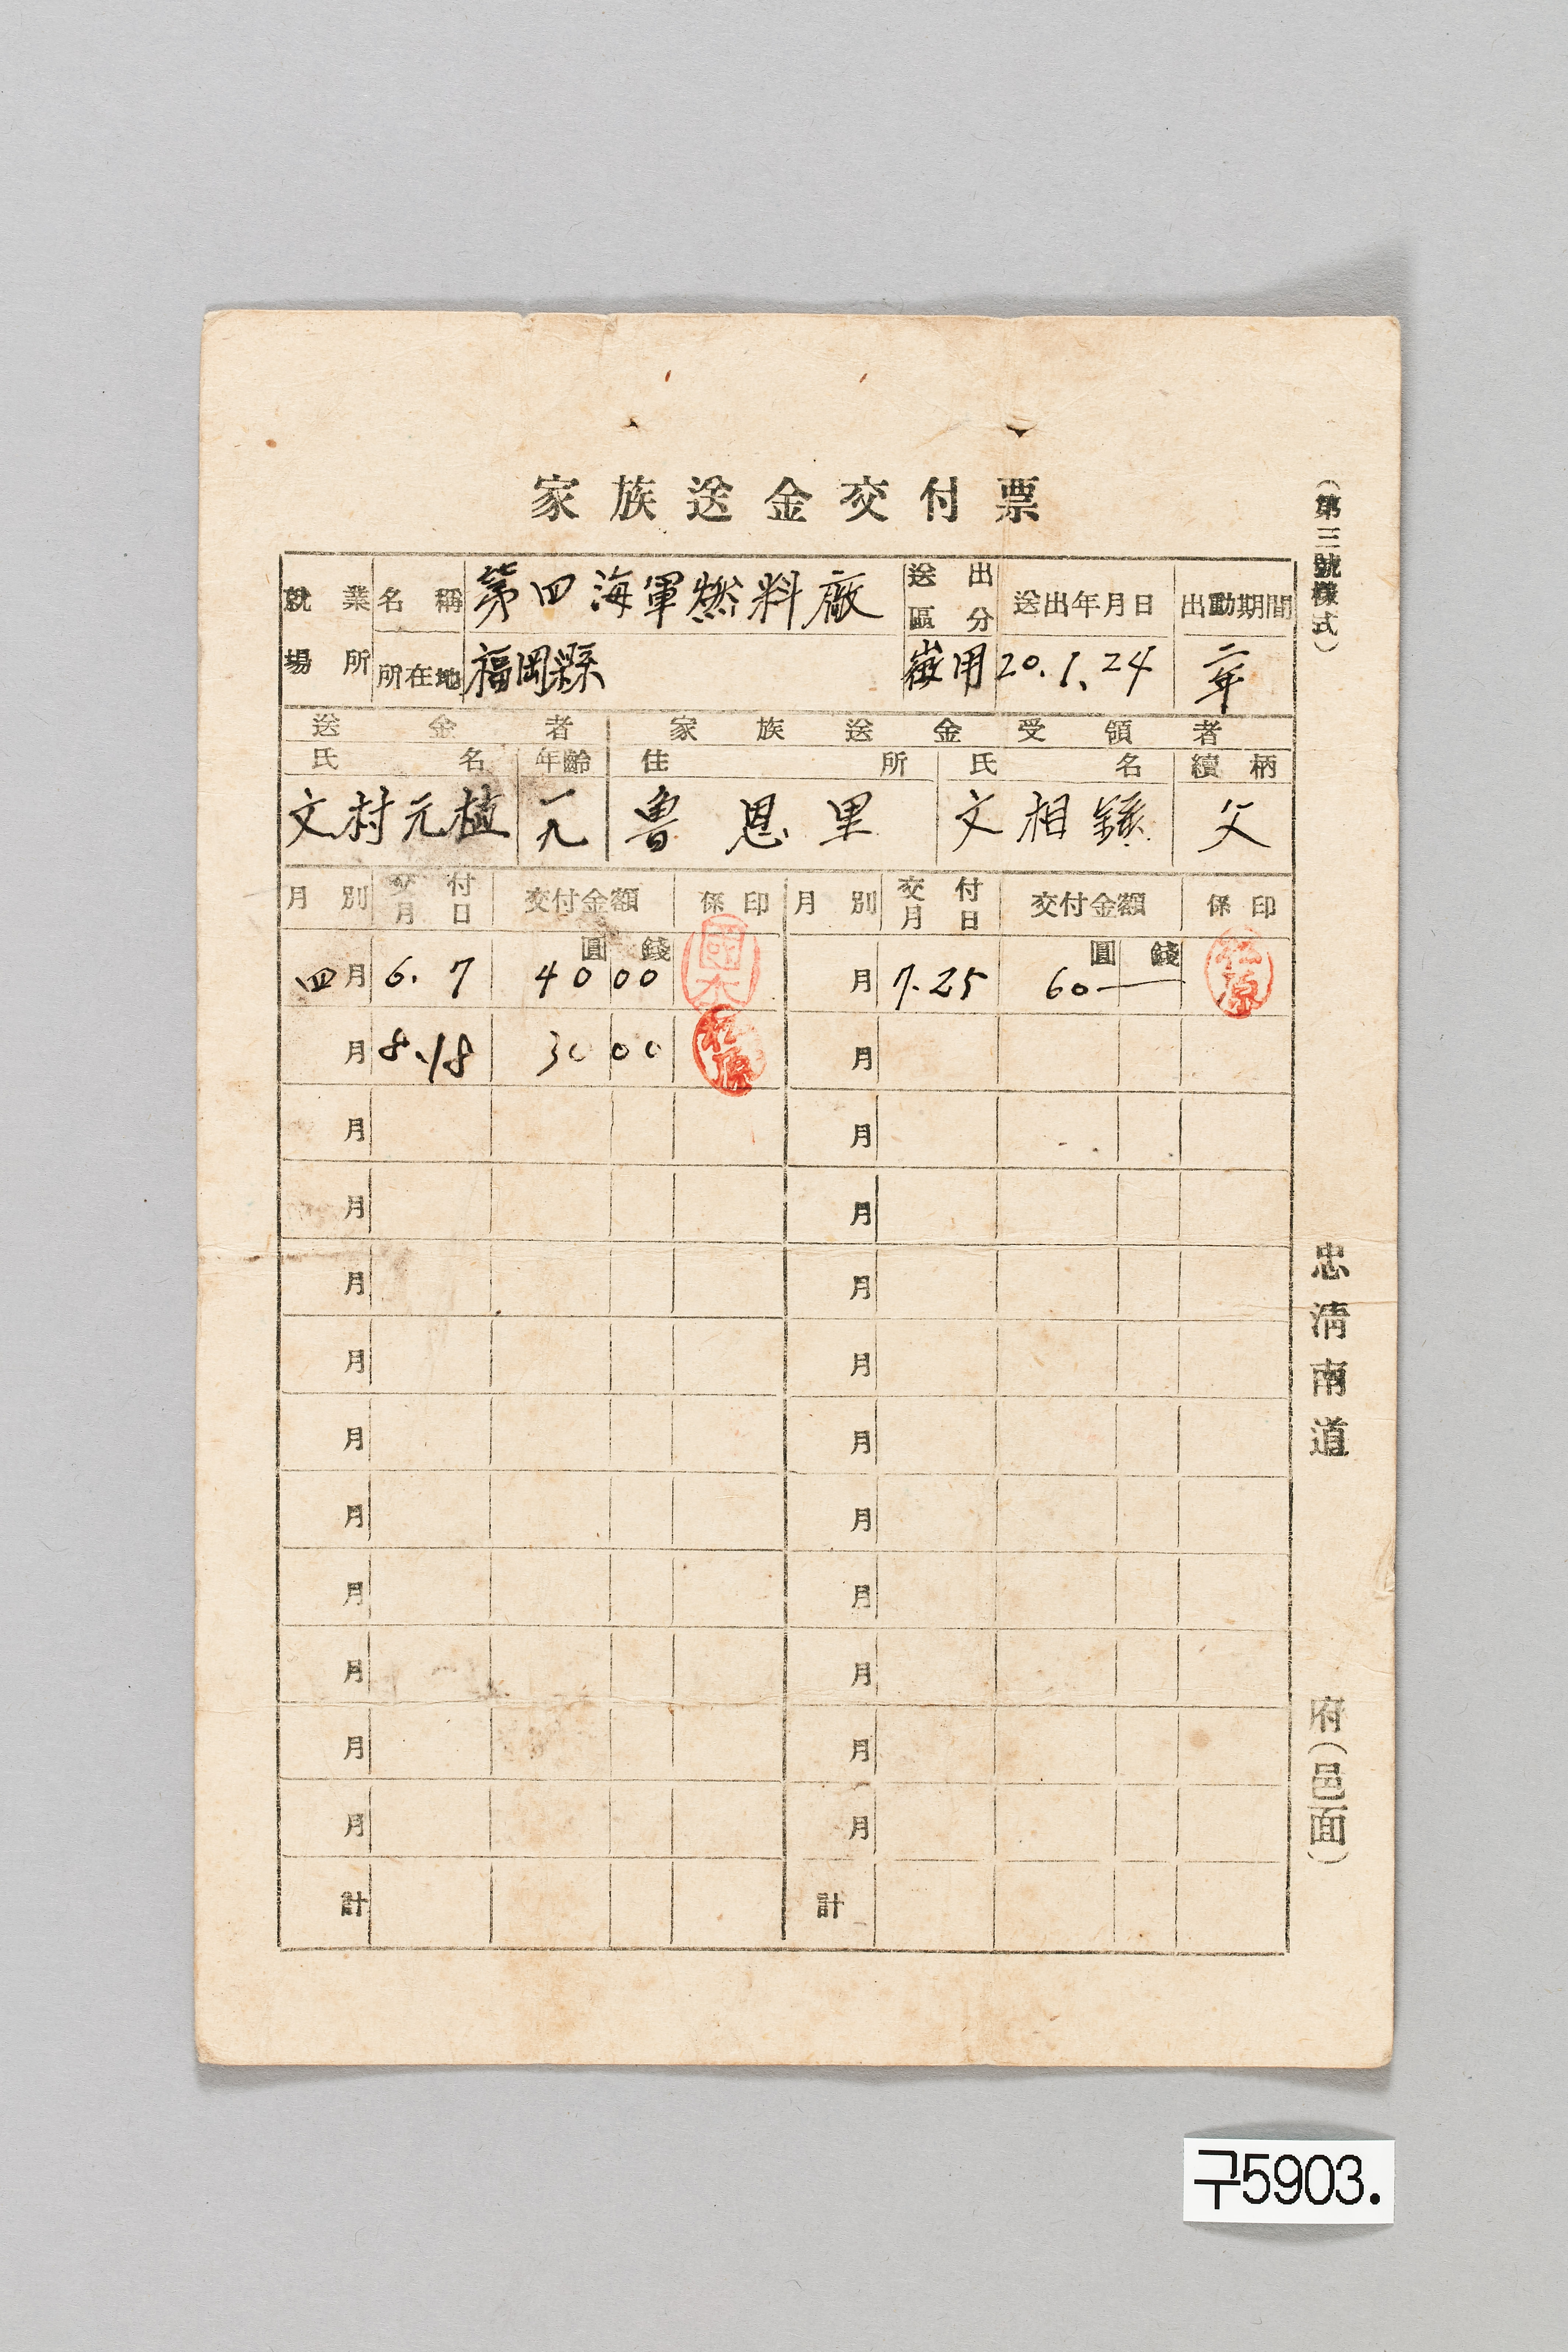 家族送金交付票
(第三號樣式)
就業場所 名稱 第四海軍燃料廠 送出區分 送出年月日 出動期間
所在地 福岡縣 徴用 20.1.24 二年
送金者 家族送金受領者
氏名 年齡 住所 氏名 續柄
文村元植 一九 魯恩里 文相 父
月別 交付月日 交付金額 係印 月別 交付月日 交付金額 係印
圓 錢 圓 錢
四月 6.7 40 00 國本 月 7.25 60— 松原
月 8.18 30 00 松原 月
月 月
月 月
月 月
月 月
月 月
月 月
月 月
月 月
月 月
月 月
計 計
忠淸南道
府(邑面)
구5903.